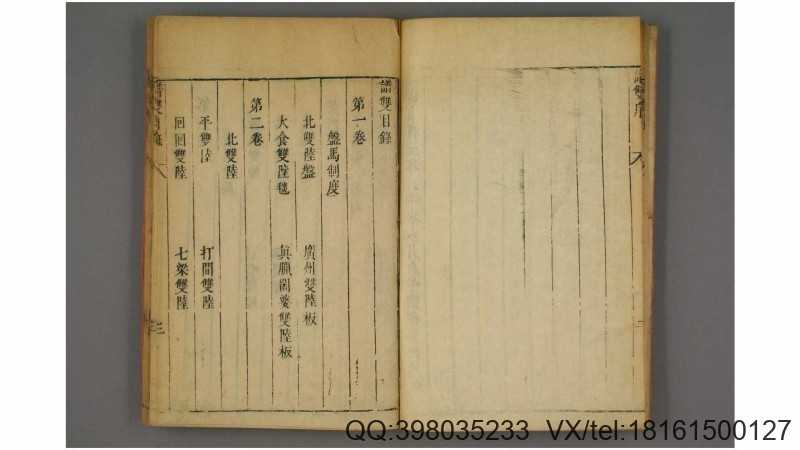 譜雙目錄
第一卷
盤馬制度
北雙陸盤 廣州雙陸板
大食雙陸毯 真臘闍婆雙陸板
第二卷
北雙陸
平雙陸 打間雙陸
回回雙陸 七梁雙陸
QQ:398035233 VX/tel:18161500127